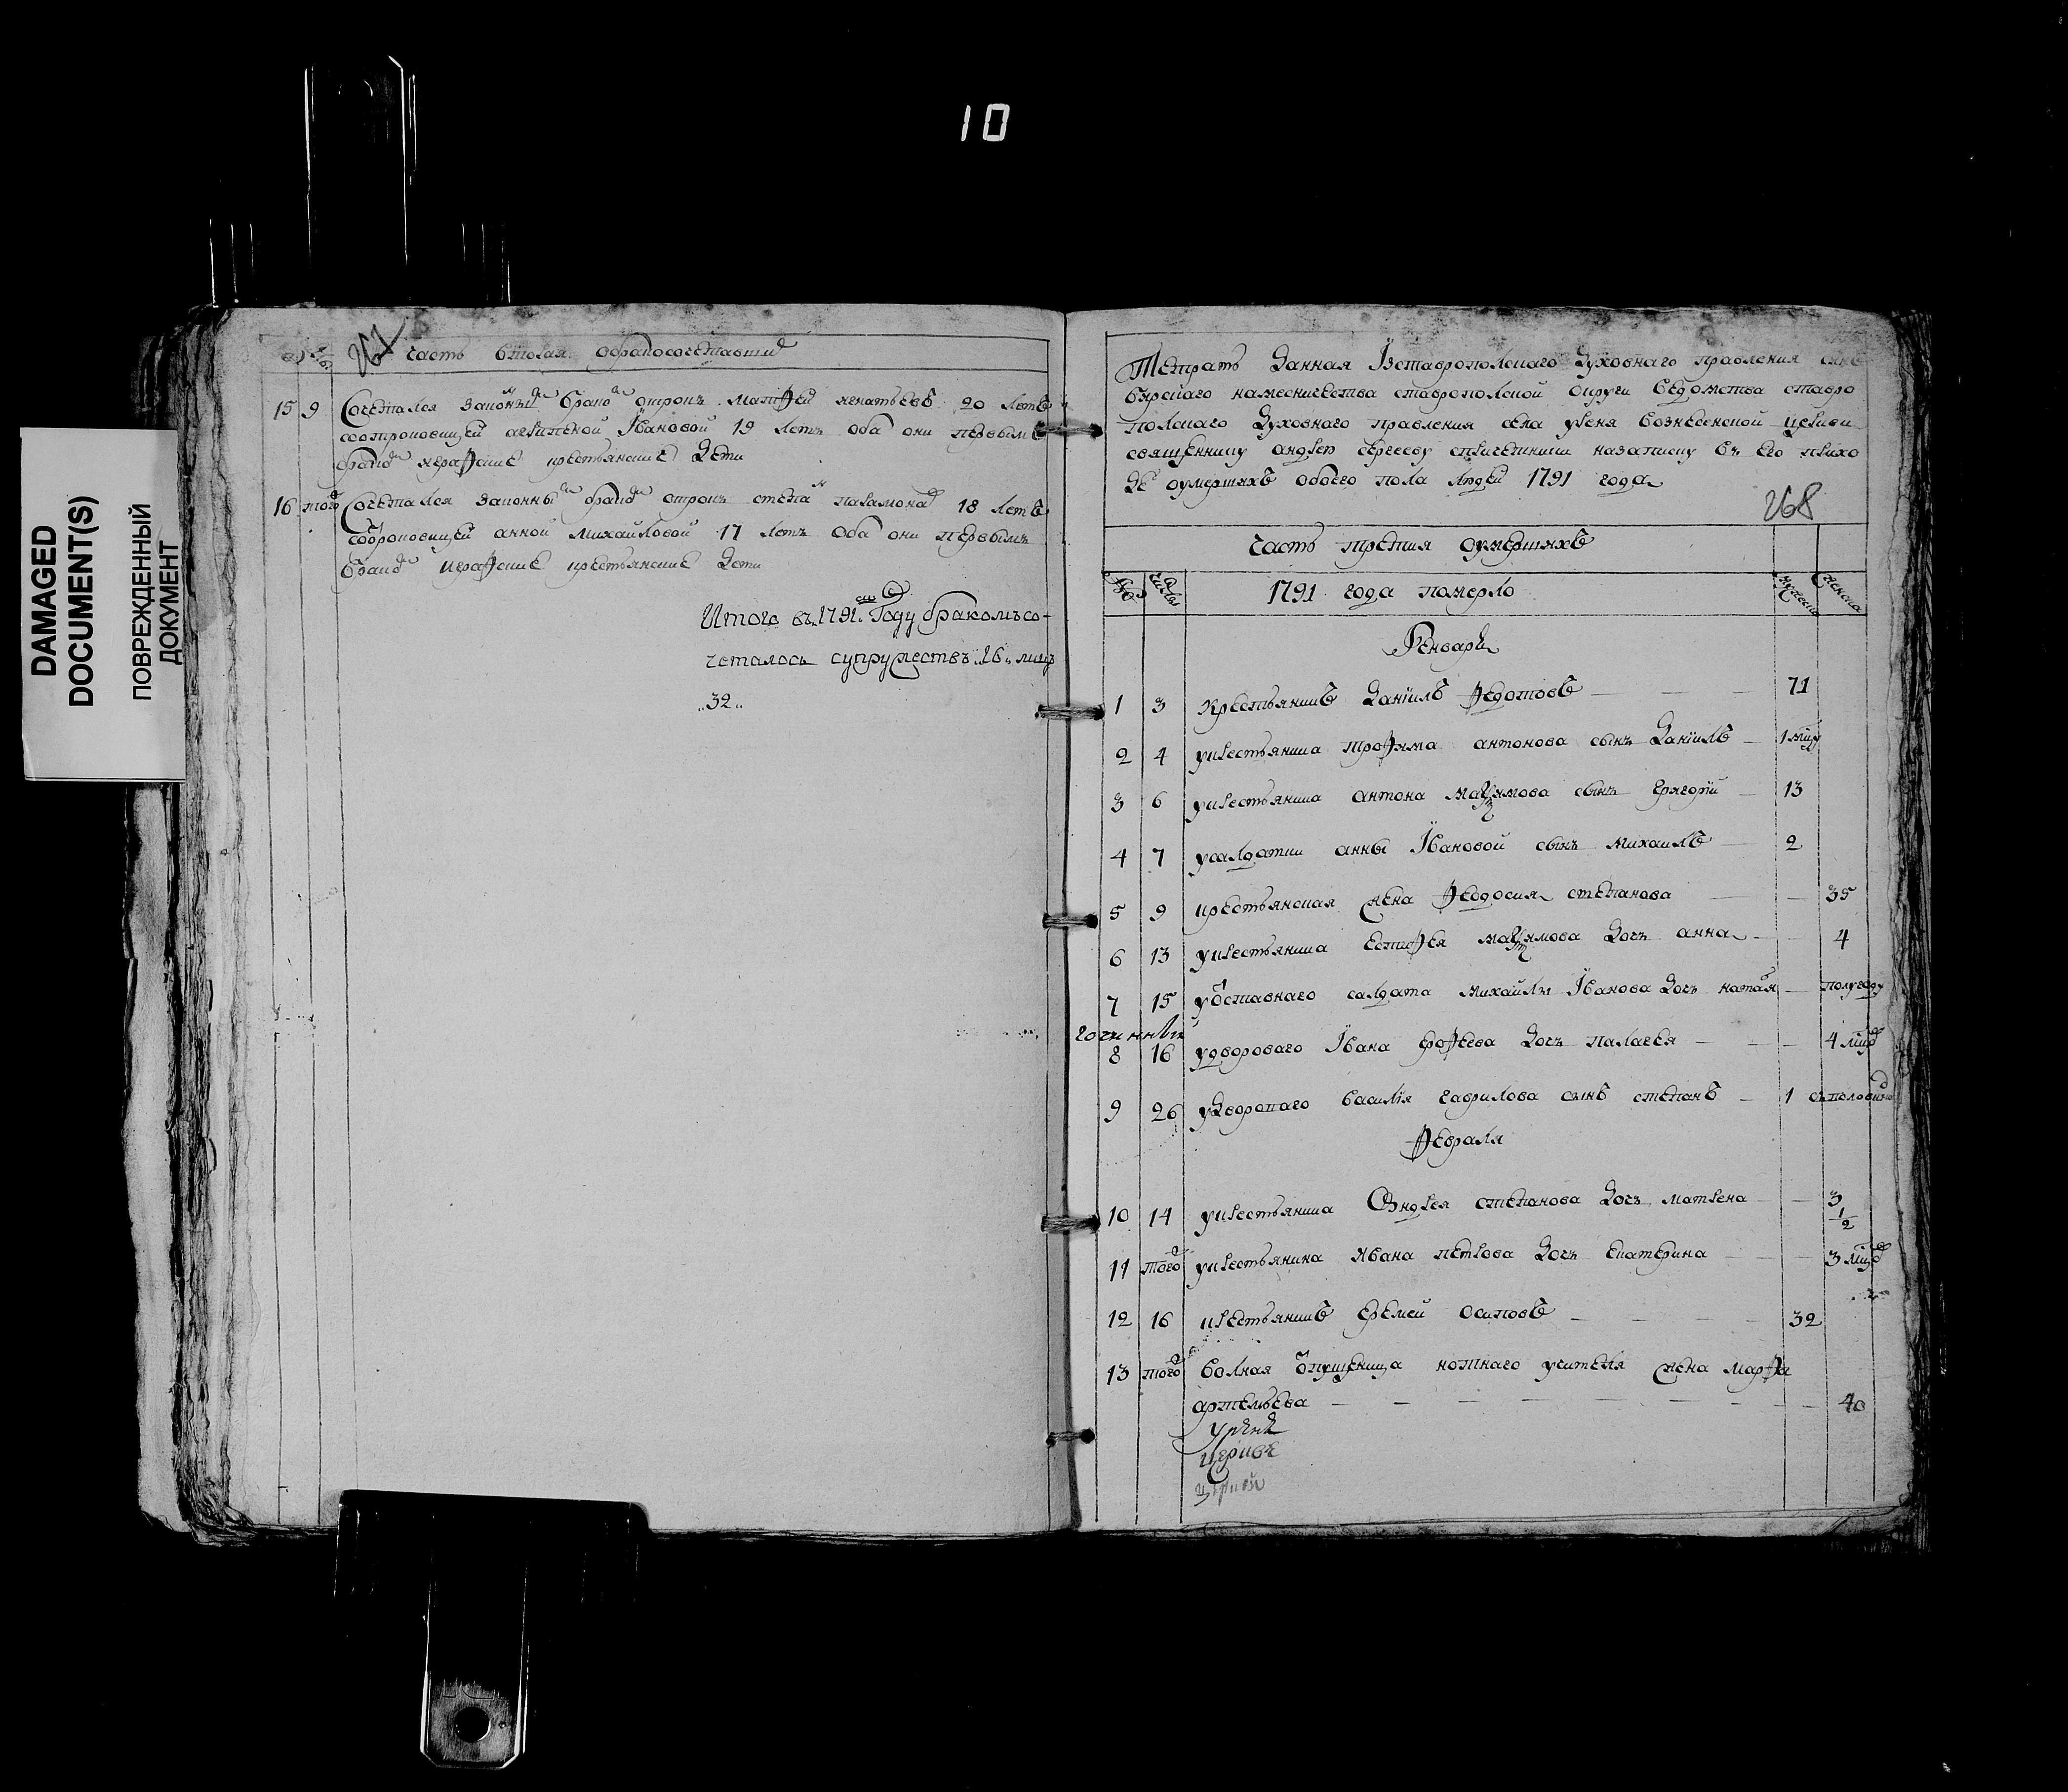 10
DAMAGED
DOCUMENT(S)
ПОВРЕЖДЕННЫЙ
ДОКУМЕНТ
267
часть вторая обракосочетавши
15 9 Сочетался законны бракo отрокъ Матфей игнатьевъ 20 летъ
соотроковицей Ивановой 19 летъ оба они первымъ
крестьянские дети
16 того Сочетался законны брако отрокъ степа парамоно 18 летъ
соотроковицей анной михайловой 17 летъ оба они первымъ
крестьянские дети
Итого въ 1791. Году бракомъ со-
четалось супружествъ „16„ лицъ
„32„
Тетрать данная Iзставропольскаго духовнаго правления синб
бирскаго наместничества ставропольской округи ведомства ставро
польскаго духовнаго правления села уреня вознесенской церкви
священнику андрею сергееву спричетники назаписку въ его прихо
де оумершихъ обоего пола людей 1791 года
268
часть третия оумершихъ
1791 года померло
мужеска женска
Генваря
1 3 крестьянинъ данїилъ федотовъ 71
2 4 укрестьянина трофима антонова сынъ данїилъ 1 мцъ
3 6 укрестьянина антона максимова сынъ григорїй 13
4 7 усалдатки анны Iвановой сынъ михаилъ 2
5 9 крестьянская жена федосия степанова 35
6 13 укрестьянина естифея максимова дочь анна 4
7 15 уотставнаго салдата михайлы Iванова дочь полугоду
8 16 удворового Iвана фофеева дочь палагея 4 мцо
9 26 удворогаго василїя гаврилова сынъ степанъ 1 съ половино
Февраля
10 14 укрестьянина Андрея степанова дочь матрена 3 1/2
11 того укрестьянина ивана петрова дочь екатерина 3 мцо
12 16 крестьянинъ еремей осиповъ 32
13 того волная отпущеница нотнаго учителя жена марфа
артемьева 40
Уреня
церкве